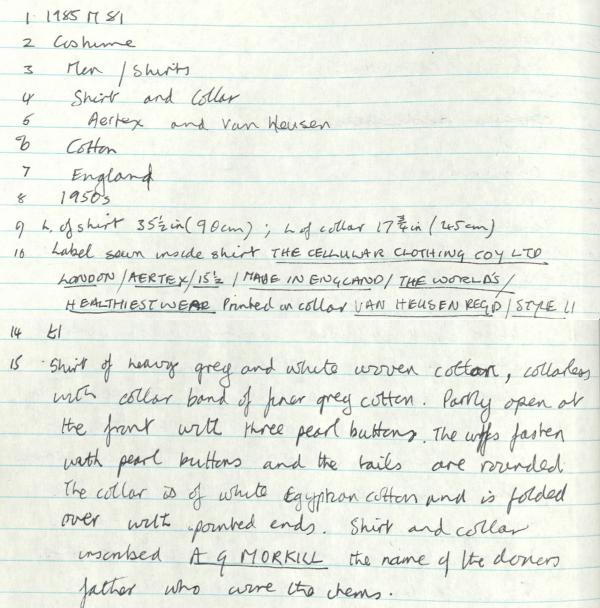 1 1985 M 81
2 Costume
3 Men / Shirts
4 Shirt and Collar
5 Aertex and Van Heusen
6 Cotton
7 England
8 1950s
9 L. of shirt 35½in (90cm) ; L of collar 17¾in (45cm)
10 Label sewn inside shirt THE CELLULAR CLOTHING COY LTD
LONDON / AERTEX / 15½ / MADE IN ENGLAND / THE WORLD'S /
HEALTHIEST WEAR Printed on collar VAN HEUSEN REGD / STYLE 11
14 E1
15 Shirt of heavy grey and white woven cotton, collarless
with collar band of finer grey cotton. Partly open at
the front with three pearl buttons. The cuffs fasten
with pearl buttons and the tails are rounded.
The collar is of white Egyptian cotton and is folded
over with pointed ends. Shirt and collar
inscribed A G MORKILL the name of the donors
father who wore the items.